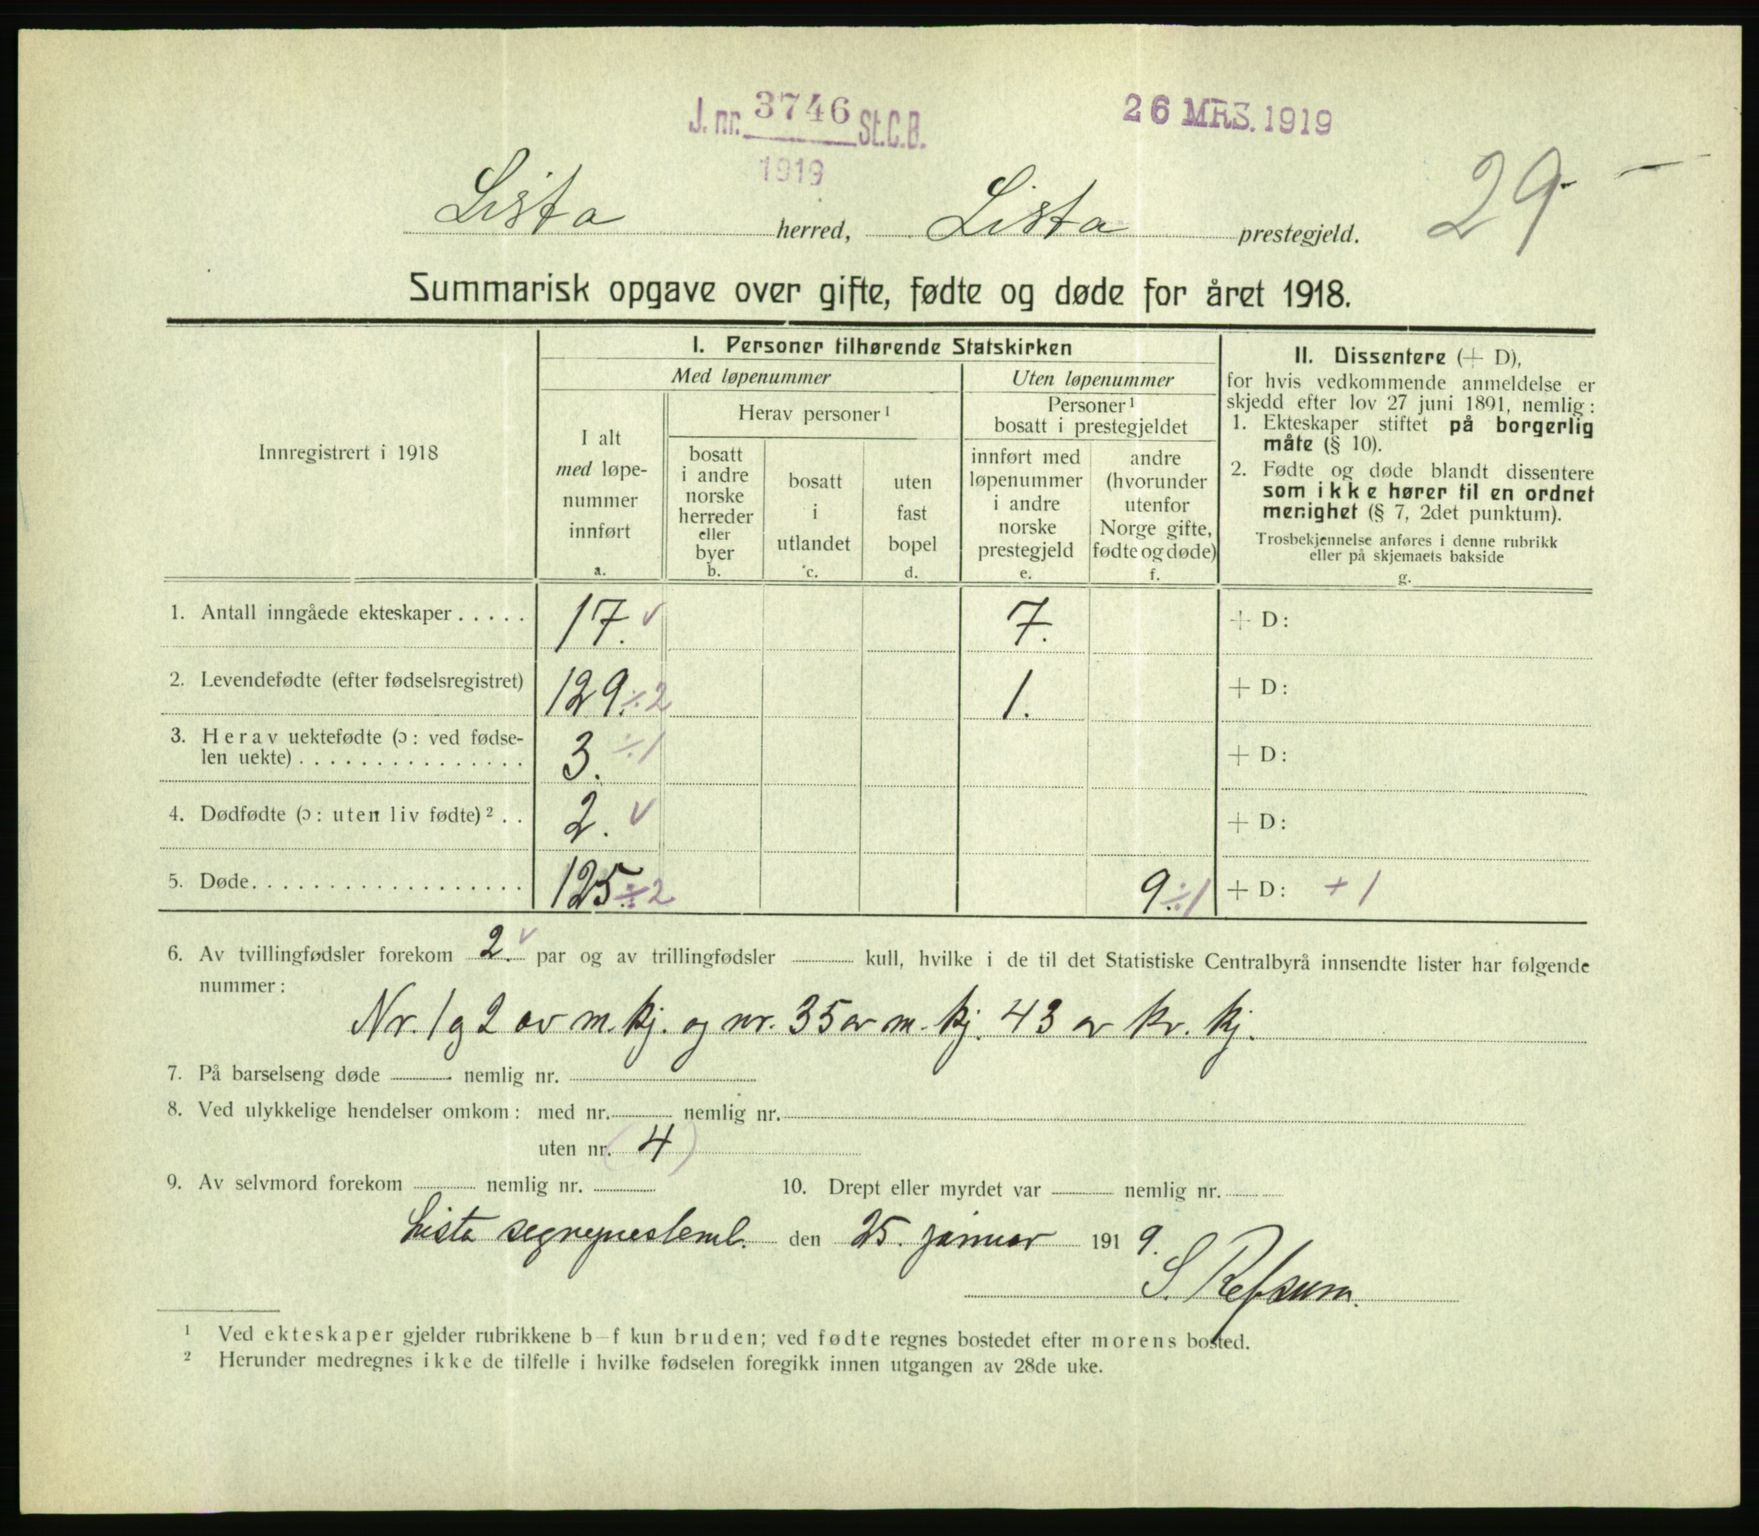 J. nr. 3746 St.C.B.
1919
26 MRS. 1919
Lista herred, Lista prestegjeld.
29.
Summarisk opgave over gifte, fødte og døde for året 1918.
Innregistrert i 1918
I. Personer tilhørende Statskirken
Med løpenummer
Uten løpenummer
I alt
med løpe-
nummer
innført
a.
Herav personer ¹
bosatt
i andre
norske
herreder
eller
byer
b.
bosatt
i
utlandet
c.
uten
fast
bopel
d.
Personer ¹
bosatt i prestegjeldet
innført med
løpenummer
i andre
norske
prestegjeld
e.
andre
(hvorunder
utenfor
Norge gifte,
fødte og døde)
f.
II. Dissentere (+ D),
for hvis vedkommende anmeldelse er
skjedd efter lov 27 juni 1891, nemlig:
1. Ekteskaper stiftet på borgerlig
måte (§ 10).
2. Fødte og døde blandt dissentere
som ikke hører til en ordnet
menighet (§ 7, 2det punktum).
Trosbekjennelse anføres i denne rubrikk
eller på skjemaets bakside
g.
1. Antall inngåede ekteskaper ..... 17. v 7. + D:
2. Levendefødte (efter fødselsregistret) 129. ÷2 1. + D:
3. Herav uektefødte (ɔ: ved fødse-
len uekte) ............... 3. ÷1 + D:
4. Dødfødte (ɔ: uten liv fødte) ² .. 2. v + D:
5. Døde. ................. 125. ÷2 9. ÷1 + D: + 1
6. Av tvillingfødsler forekom 2. v par og av trillingfødsler kull, hvilke i de til det Statistiske Centralbyrå innsendte lister har følgende
nummer:
Nr. 1 og 2 av m. kj. og nr. 35 av m. kj. 43 av kv. kj.
7. På barselseng døde nemlig nr.
8. Ved ulykkelige hendelser omkom: med nr. nemlig nr.
uten nr. (4)
9. Av selvmord forekom nemlig nr. 10. Drept eller myrdet var nemlig nr.
Lista den 25. januar 1919.
S. Refsum.
¹ Ved ekteskaper gjelder rubrikkene b–f kun bruden; ved fødte regnes bostedet efter morens bosted.
² Herunder medregnes ikke de tilfelle i hvilke fødselen foregikk innen utgangen av 28de uke.